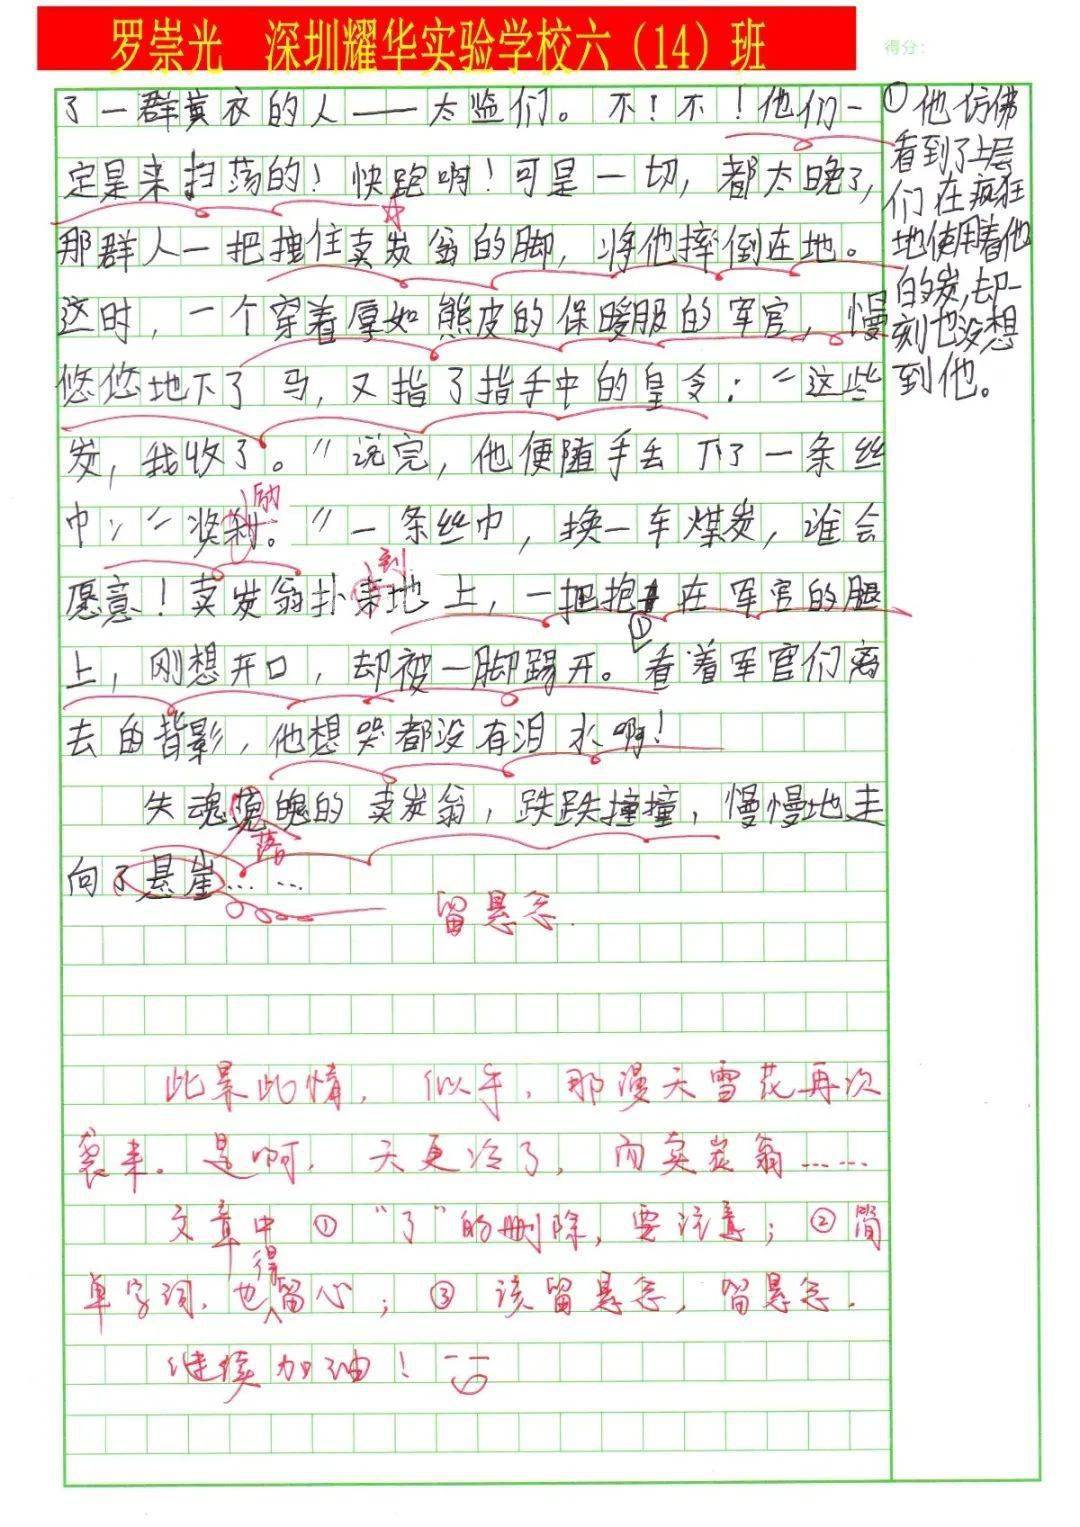 罗崇光 深圳耀华实验学校六（14）班
得分：
了一群黄衣的人——太监们。不！不！他们一
定是来扫荡的！快跑啊！可是一切，都太晚了，
那群人一把拽住卖炭翁的脚，将他摔倒在地。
这时，一个穿着厚如熊皮的保暖服的军官，慢
悠悠地下了马，又指了指手中的皇令："这些
炭，我收了。"说完，他便随手丢下了一条丝
巾："奖利。"一条丝巾，换一车煤炭，谁会
励
愿意！卖炭翁扑来地上，一把抱在军官的腿
到
上，刚想开口，却被一脚踢开。①看着军官们离
去的背影，他想哭都没有泪水啊！
失魂荒魄的卖炭翁，跌跌撞撞，慢慢地走
落
向了悬崖……
留悬念.
①他仿佛
看到了上层
们在疯狂
地使用着他
的炭，却一
刻也没想
到他。
此景此情，似乎，那漫天雪花再次
袭来。是啊，天更冷了，而卖炭翁……
文章中①"了"的删除，要注意；②简
单字词，也得留心；③该留悬念，留悬念.
继续加油！